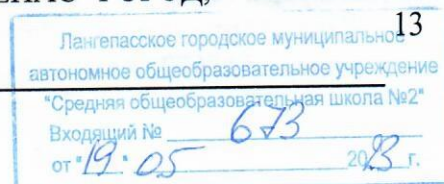 ГОРОД,
13
Лангепасское городское муниципальное
автономное общеобразовательное учреждение
"Средняя общеобразовательная школа №2"
Входящий № 673
от "19" 05 2023 г.